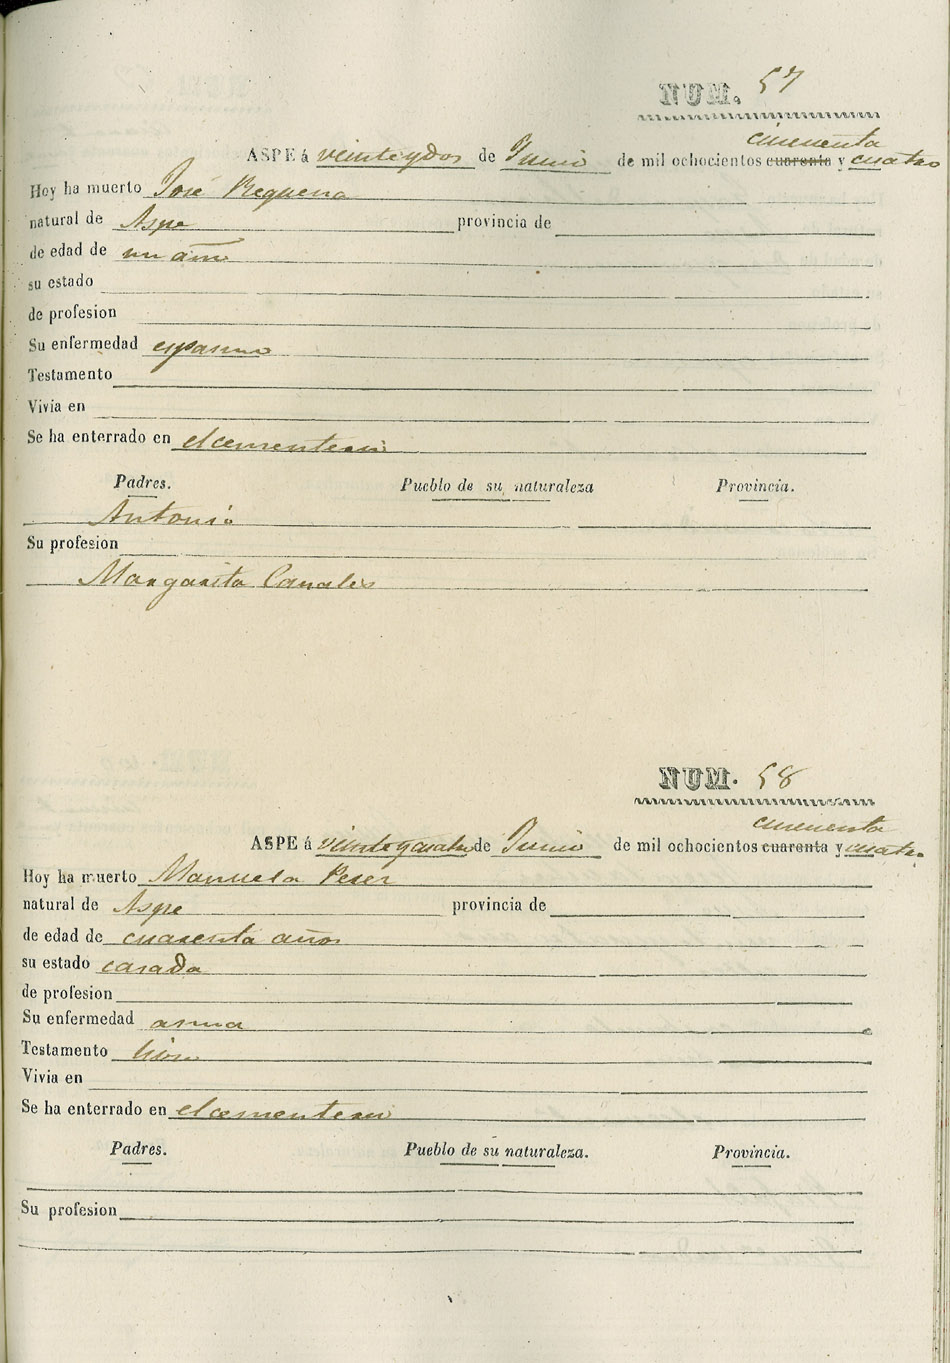 NUM. 57
cincuenta
ASPE á veinteydos de Junio de mil ochocientos cuarenta y cuatro
Hoy ha muerto José Requena
natural de Aspe provincia de
de edad de un año
su estado
de profesion
Su enfermedad espasmo
Testamento
Vivia en
Se ha enterrado en el cementerio
Padres. Pueblo de su naturaleza Provincia.
Antonio
Su profesion
Margarita Canales
NUM. 58
cincuenta
ASPE á veinteycuatro de Junio de mil ochocientos cuarenta y cuatro
Hoy ha muerto Manuela Perer
natural de Aspe provincia de
de edad de cuarenta años
su estado casada
de profesion
Su enfermedad asma
Testamento hizo
Vivia en
Se ha enterrado en el cementerio
Padres. Pueblo de su naturaleza. Provincia.
Su profesion